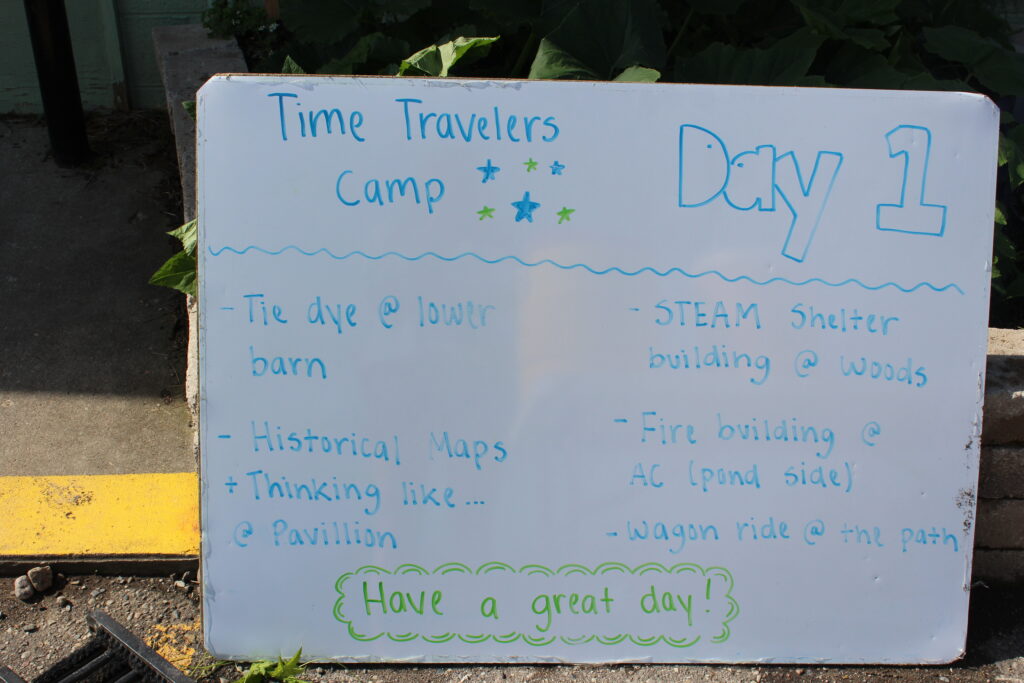 Time Travelers
Camp
Day 1
- Tie dye @ lower
barn
- Historical Maps
+ Thinking like...
@ Pavillion
- STEAM Shelter
building @ woods
- Fire building @
AC (pond side)
- wagon ride @ the path
Have a great day!